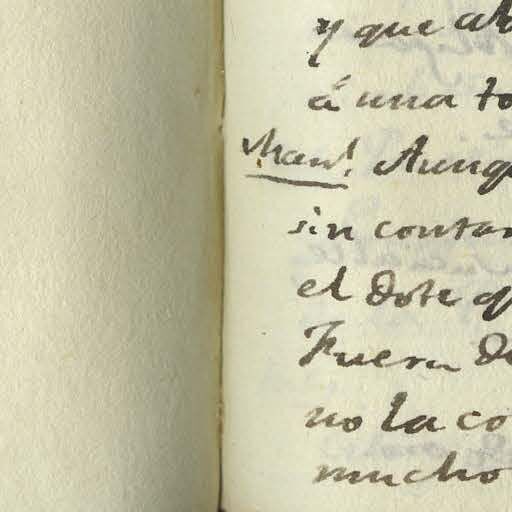 y que
á una to
Man.l Aunq
sin contar
el dote q
Fuera de
no la co
mucho